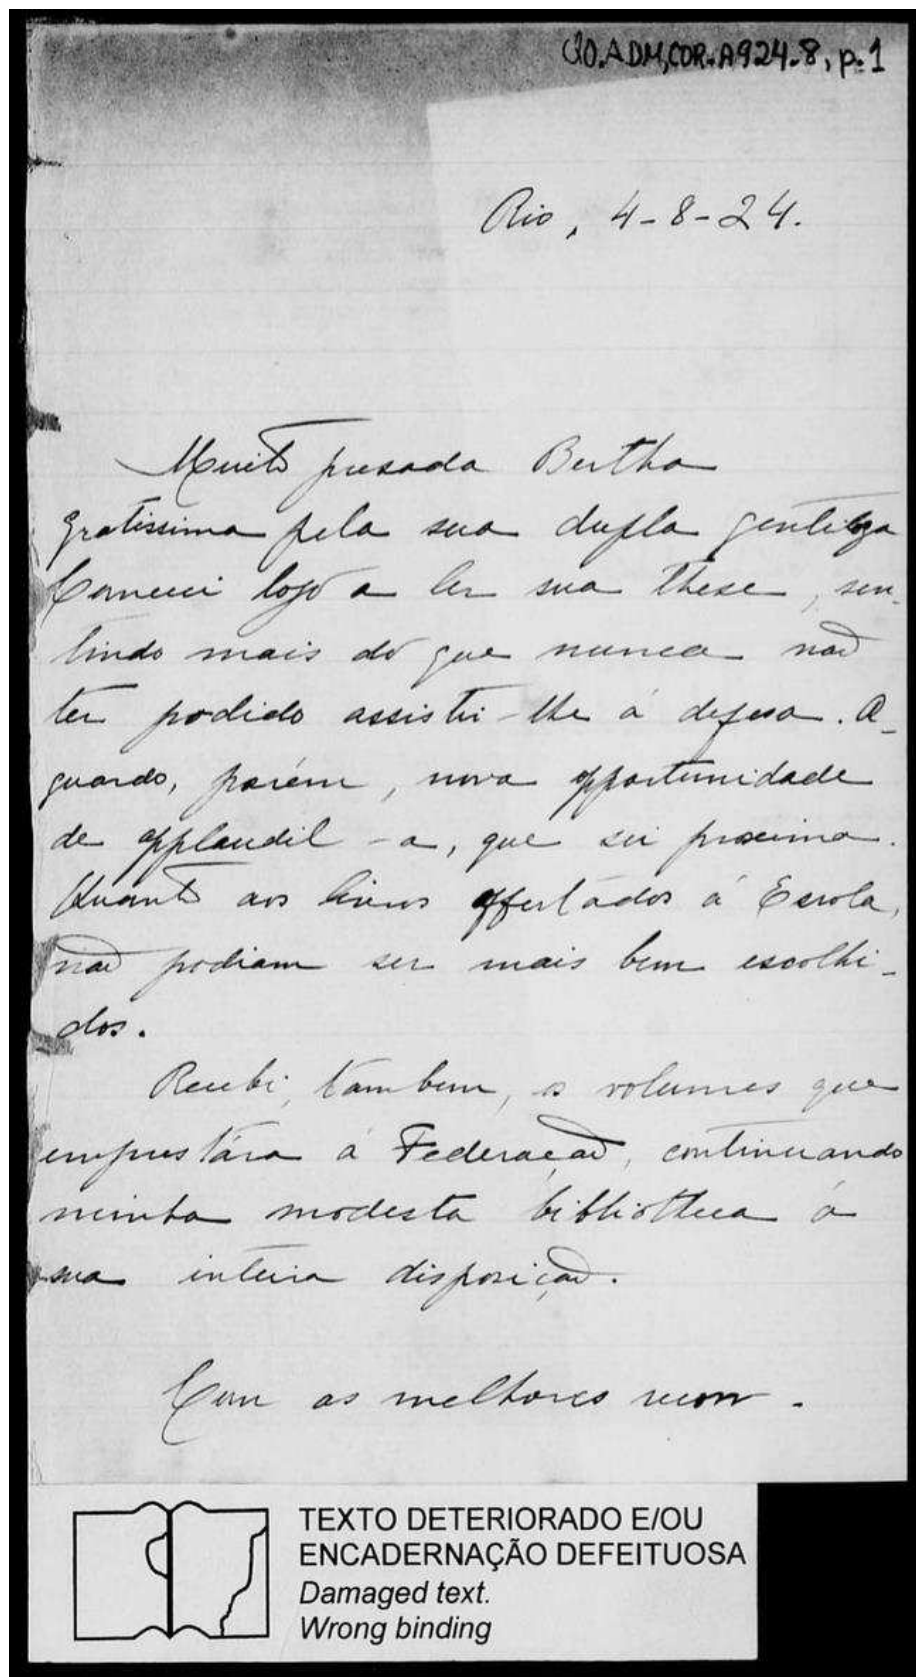 Q0.ADM,COR.A924.8, p.1
Rio, 4-8-24.
Muito presada Bertha
Gratissima pela sua dupla gentileza
Comecei logo a ler sua these, sen-
tindo mais do que nunca não
ter podido assistir-lhe á defesa. A-
guardo, porém, nova opportunidade
de applaudil-a, que sei proxima.
Quanto aos livros offertados á Escola,
não podiam ser mais bem escolhi-
dos.
Recebi, tambem, os volumes que
emprestára á Federação, continuando
minha modesta bibliotheca á
sua inteira disposição.
Com as melhores recom-
TEXTO DETERIORADO E/OU
ENCADERNAÇÃO DEFEITUOSA
Damaged text.
Wrong binding